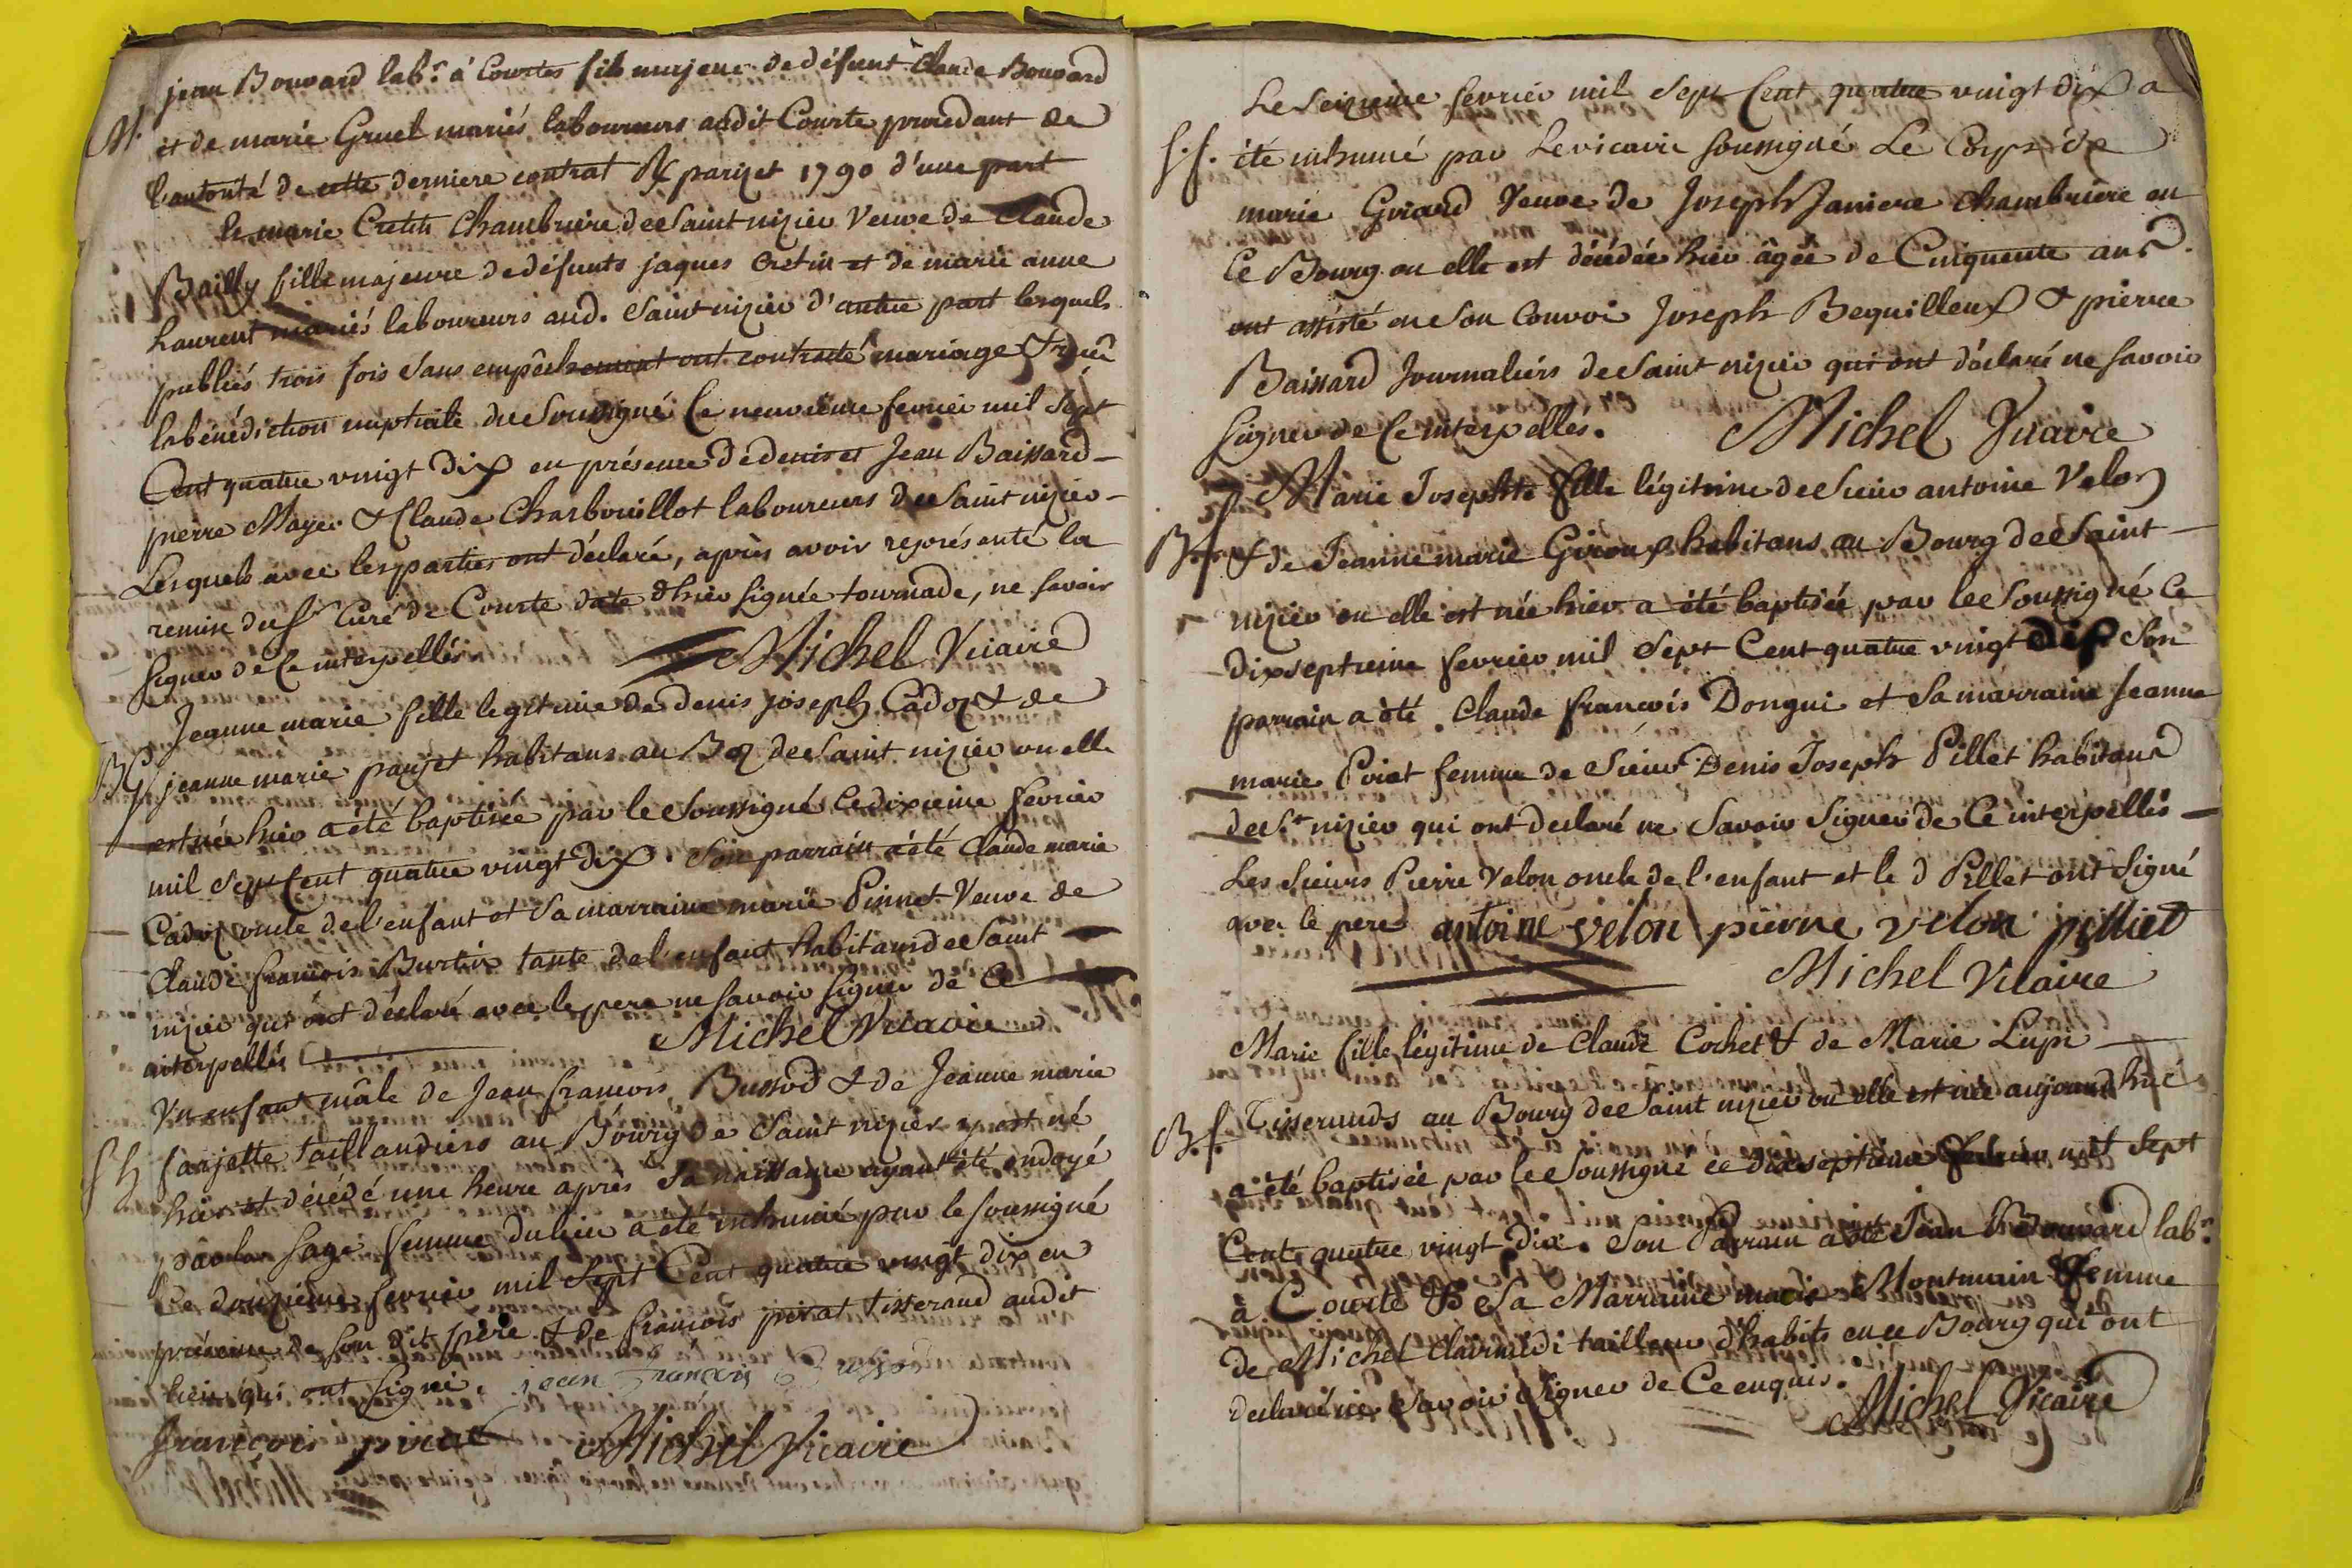 jean Bouvard lab.r à Courtes fils majeur de défunt Claude Bouvard
M. et de marie Gruel mariés laboureurs audit Courte procedant de
l'autorité de cette derniere contrat Rç parijet 1790 d'une part
Et marie Cretin Chambriere de Saint nizier Veuve de Claude
Bailly fille majeure de défunts jaques Cretin et de marie anne
Laurent mariés laboureurs aud. Saint nizier d'autre part lesquels
publiés trois fois sans empêchement ont contracté mariage & reçu
la bénédiction nuptiale du Soussigné le neuvieme fevrier mil sept
Cent quatre vingt dix en présence de denis et Jean Baissard
pierre Mayer & Claude Charbouillot laboureurs de Saint nizier
Lesquels avec les parties ont déclaré, après avoir représenté la
remise du Sr Curé de Courte date d'hier signée tournade, ne savoir
signer de Ce interpellés
Michel Vicaire
Jeanne marie fille legitime de denis joseph Cadoz & de
jeanne marie parijet habitans au Bg de Saint nizier ou elle
est née hier a été baptisée par le Soussigné le dixieme fevrier
mil Sept Cent quatre vingt dix. Son parrain a été Claude marie
Cadoz oncle de l'enfant et Sa marraine marie Pinnet Veuve de
Claude francois Burtin tante de l'enfant habitans de Saint
nizier qui ont déclaré avec le pere ne savoir signer de Ce
interpellés
Michel Vicaire
Un enfant mâle de Jean francois Bussod & de Jeanne marie
farjette taillandiers au Bourg de Saint nizier y est né
hier et décédé une heure après Sa naissance ayant été ondoyé
par la Sage femme du lieu a été inhumé par le soussigné
Le douzieme fevrier mil Sept Cent quatre vingt dix en
présence de Son dit père & de francois pirat tisserand audit
lieu qui ont signé. jean francois Bussod
francois pirat Michel Vicaire
Le Seizieme fevrier mil Sept Cent quatre vingt dix a
S.f. été inhumé par Le vicaire soussigné Le Corps de
marie Girard Veuve de Joseph Janiere Chambriere en
Ce Bourg ou elle est décédée hier âgée de Cinquente ans
ont assisté en Son Convoi Joseph Bequilleux & pierre
Baissard Journaliers de Saint nizier qui ont déclaré ne savoir
signer de Ce interpellés. Michel Vicaire
Marie Josephte fille légitime de Sieur antoine Velon
B.f. & de Jeanne marie Giroux habitans au Bourg de Saint
nizier ou elle est née hier a été baptisée par le Soussigné Le
dixseptieme fevrier mil Sept Cent quatre vingt dix Son
parrain a été Claude francois Dongui et Sa marraine Jeanne
marie Poiat femme de Sieur Denis Joseph Pillet habitans
de St nizier qui ont declaré ne Savoir Signer de Ce interpellés
Les Sieurs Pierre Velon oncle de l'enfant et le d Pillet ont Signé
avec le pere antoine velon pierre velon pilliet
Michel Vicaire
Marie fille légitime de Claude Cochet & de Marie Lupi
B.f. Tisserands au Bourg de Saint nizier ou elle est née aujourd'hui
a été baptisée par le Soussigné ce dixseptieme fevrier mil Sept
Cent quatre vingt Dix. Son Parrain a été Jean Bouvard lab.r
à Courte & Sa Marraine marie Montmain femme
de Michel Clairmidi tailleur d'habits en ce Bourg qui ont
declaré ne Savoir Signer de Ce enquis.
Michel Vicaire